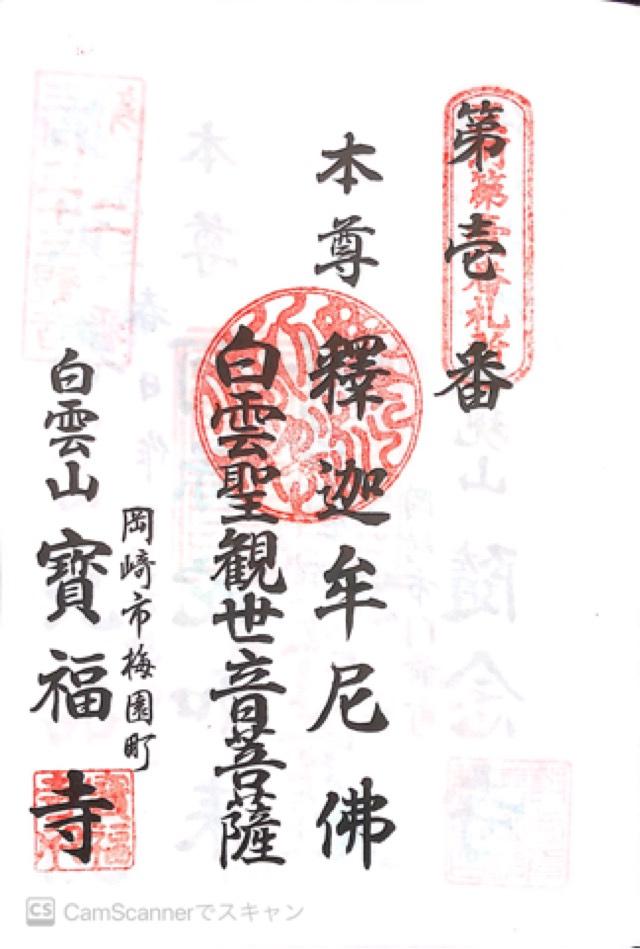 第壱番
本尊 釋迦牟尼佛
白雲聖観世音菩薩
岡崎市梅園町
白雲山 寳福寺
CS CamScannerでスキャン